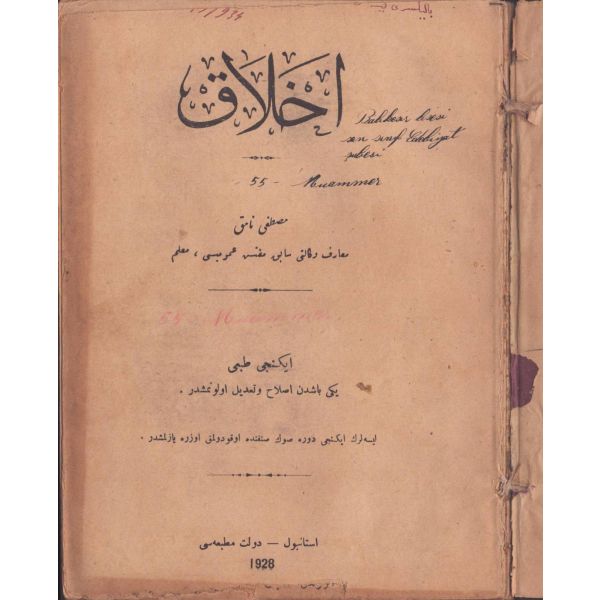 1934
اخلاق
Balıkesir lisesi
son sınıf Edebiyat
şubesi
- 55 - Muammer
مصطفى نامق
معارف وكالتى سابق مفتش عموميسى ، معلم
55 - Muammer
ايكنجى طبعى
يكى باشدن اصلاح و تعديل اولونمشدر .
ليسه‌لرك ايكنجى دوره صوك صنفنده اوقودولمق اوزره يازلمشدر .
استانبول — دولت مطبعه‌سى
1928